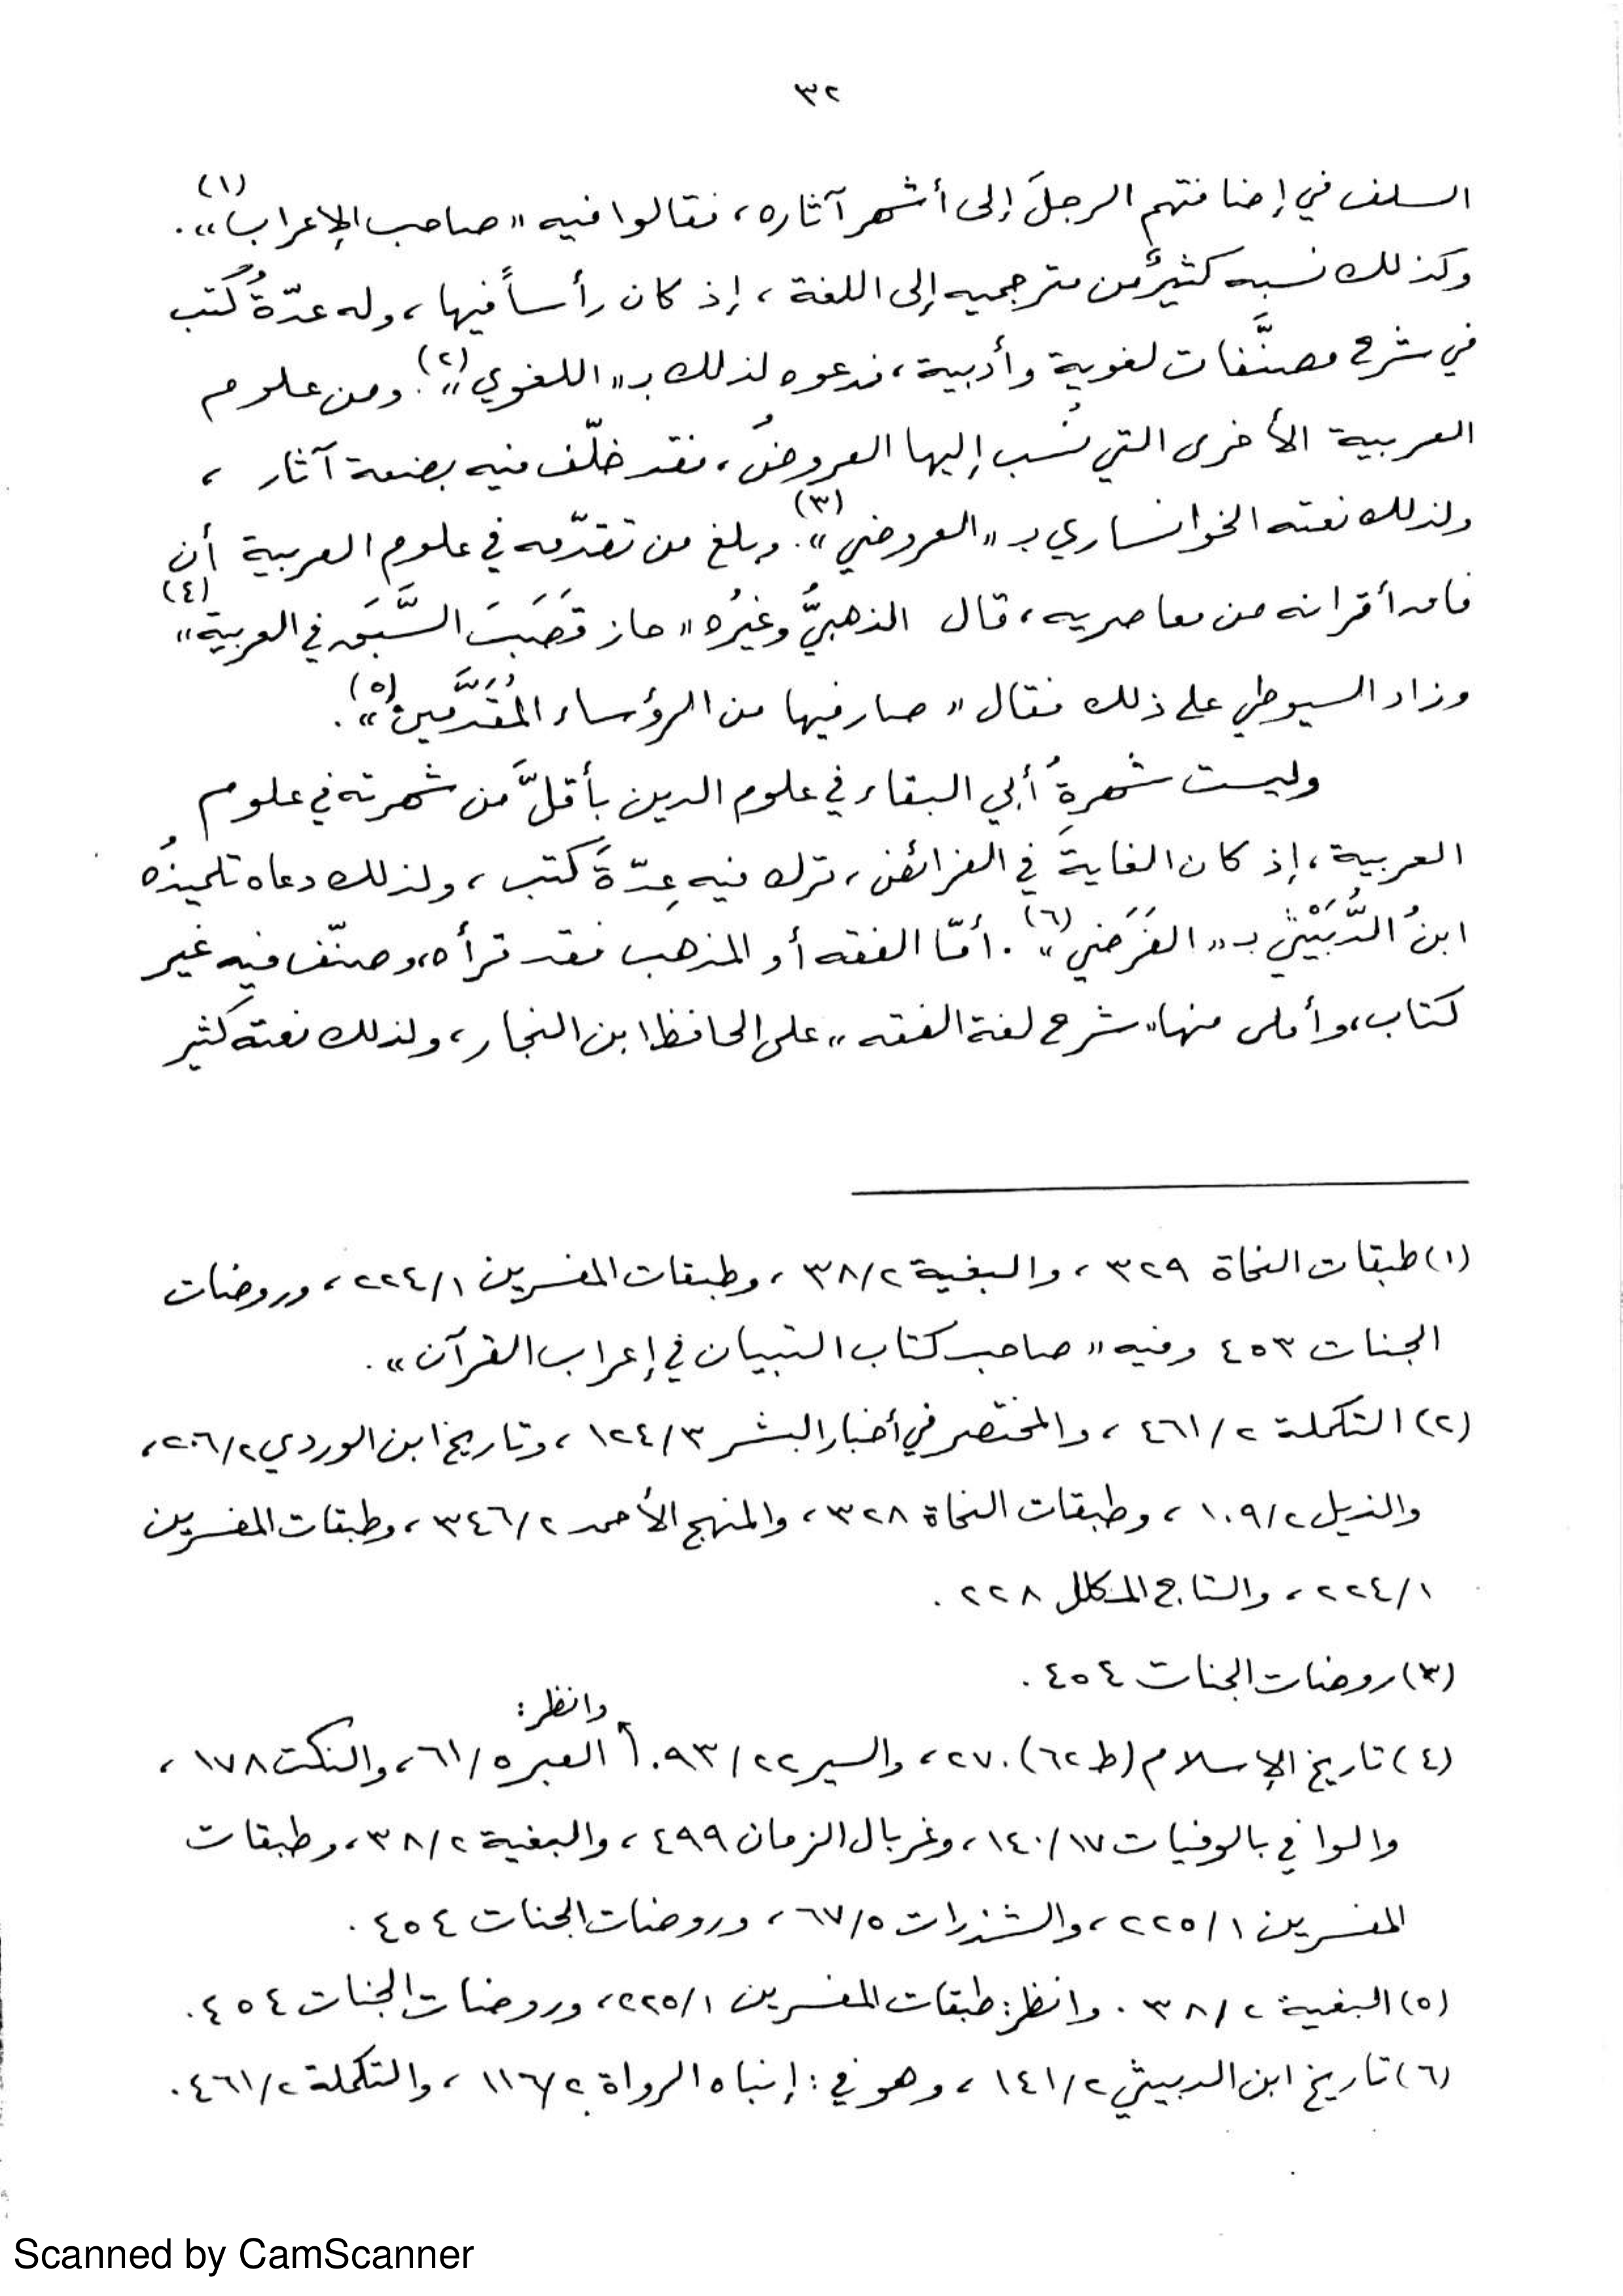 ٣٢
السلف في إضافتهم الرجلَ إلى أشهر آثاره، فقالوا فيه «صاحب الإعراب»(١).
وكذلك نسبه كثيرٌ من مترجميه إلى اللغة، إذ كان رأساً فيها، وله عدّةُ كُتب
في شرح مصنَّفات لغوية وأدبية، فدعوه لذلك بـ«اللغوي»(٢). ومن علوم
العربية الأخرى التي نُسب إليها العروضُ، فقد خلّف فيه بضعة آثار ،
ولذلك نعته الخوانساري بـ«العروضي»(٣). وبلغ من تقدّمه في علوم العربية أن
فاق أقرانه من معاصريه، قال الذهبيُّ وغيرُه «حاز قَصَبَ السَّبَق في العربية»(٤)
وزاد السيوطي على ذلك فقال «صار فيها من الرؤساء المُقَدَّمين»(٥).
وليست شهرةُ أبي البقاء في علوم الدين بأقلَّ من شهرته في علوم
العربية، إذ كان الغايةَ في الفرائض، ترك فيه عِدّةَ كتب، ولذلك دعاه تلميذُه
ابنُ الدُّبَيْثيِّ بـ«الفَرَضي»(٦). أمّا الفقه أو المذهب فقد قرأه، وصنّف فيه غير
كتاب، وأملى منها «شرح لغة الفقه» على الحافظ ابن النجار، ولذلك نعته كثير
(١) طبقات النحاة ٣٢٩، والبغية ٣٨/٢، وطبقات المفسرين ٢٢٤/١، وروضات
الجنات ٤٥٣ وفيه «صاحب كتاب التبيان في إعراب القرآن».
(٢) التكملة ٤٦١/٢، والمختصر في أخبار البشر ١٢٤/٣، وتاريخ ابن الوردي ٢٠٦/٢،
والذيل ١٠٩/٢، وطبقات النحاة ٣٢٨، والمنهج الأحمد ٣٤٦/٢، وطبقات المفسرين
٢٢٤/١، والتاج المكلل ٢٢٨.
(٣) روضات الجنات ٤٥٤.
(٤) تاريخ الإسلام (ط ٦٢) ٢٧٠، والسير ٩٣/٢٢. وانظر: العبر ٦١/٥، والنكت ١٧٨،
والوافي بالوفيات ١٤٠/١٧، وغربال الزمان ٤٩٩، والبغية ٣٨/٢، وطبقات
المفسرين ٢٢٥/١، والشذرات ٦٧/٥، وروضات الجنات ٤٥٤.
(٥) البغية ٣٨/٢. وانظر: طبقات المفسرين ٢٢٥/١، وروضات الجنات ٤٥٤.
(٦) تاريخ ابن الدبيثي ١٤١/٢، وهو في: إنباه الرواة ١١٦/٢، والتكملة ٤٦١/٢.
Scanned by CamScanner